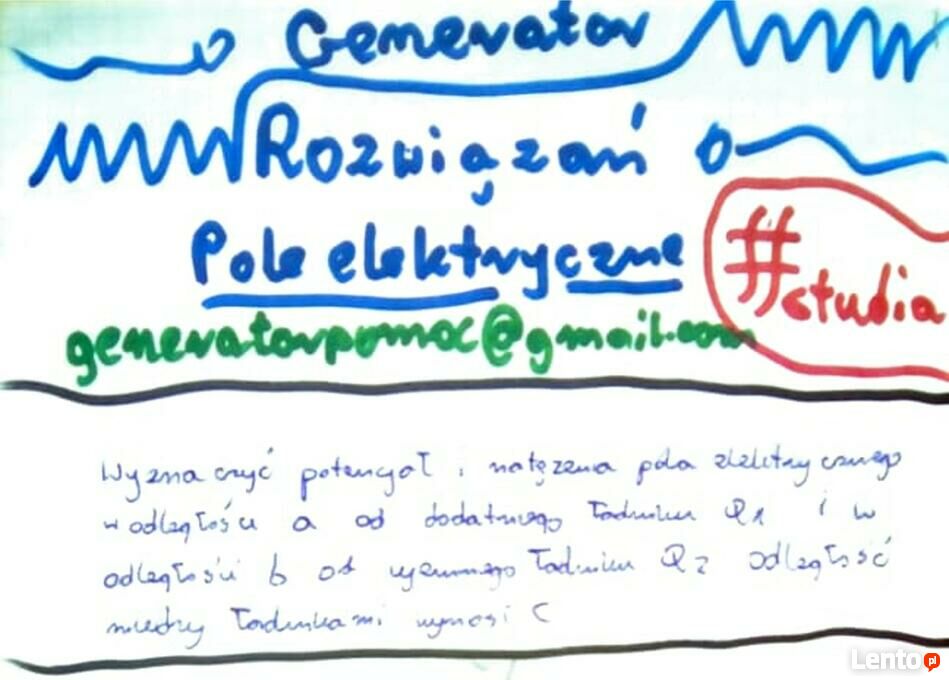 Generator
Rozwiązań
Pole elektryczne
#studia
generatorpomoc@gmail.com
Wyznaczyć potencjał i natężenia pola elektrycznego
w odległości a od dodatniego ładunku Q1 i w
odległości b od ujemnego ładunku Q2 odległość
między ładunkami wynosi C
Lento.pl